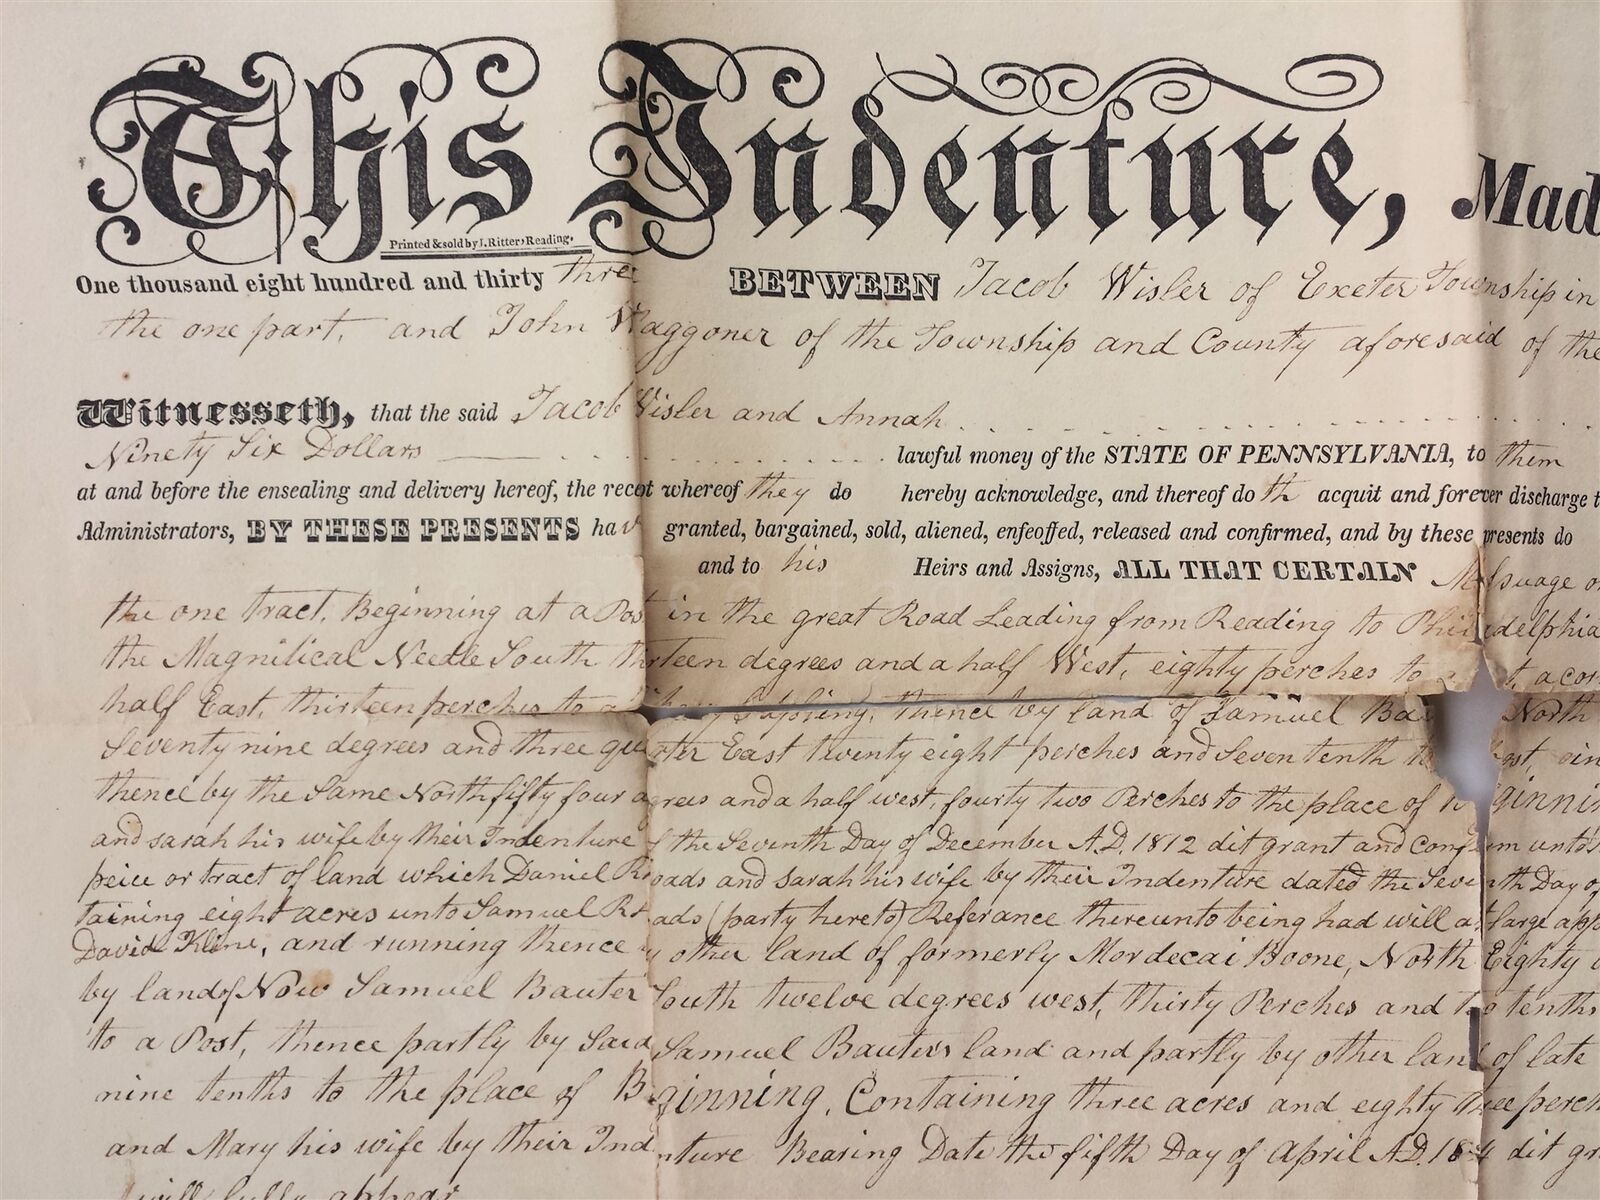 This Indenture, Mad
Printed & sold by J. Ritter, Reading.
One thousand eight hundred and thirty three BETWEEN Jacob Wisler of Exeter Township in
the one part, and John Waggoner of the Township and County aforesaid of the
Witnesseth, that the said Jacob Wisler and Annah
Ninety Six Dollars lawful money of the STATE OF PENNSYLVANIA, to them
at and before the ensealing and delivery hereof, the recet whereof they do hereby acknowledge, and thereof do th acquit and forever discharge t
Administrators, BY THESE PRESENTS hav granted, bargained, sold, aliened, enfeoffed, released and confirmed, and by these presents do
and to his Heirs and Assigns, ALL THAT CERTAIN Messuage o
the one tract. Beginning at a Post in the great Road Leading from Reading to Philadelphia
the Magnitical Needle South thirteen degrees and a half West, eighty perches to a a cor
half East, thirteen perches to a Sapling, thence by land of Samuel Ba North
Seventy nine degrees and three quarter East twenty eight perches and Seven tenth to
thence by the Same North fifty four degrees and a half west, fourty two Perches to the place of Beginnin
and sarah his wife by their Indenture of the Seventh Day of December A.D. 1812 dit grant and confirm unto
peice or tract of land which Daniel Rhoads and Sarah his wife by their Indenture dated the Seventh Day of
taining eight acres unto Samuel Rhoads (party hereto) Referance thereunto being had will at large app
David Kline, and running thence by other land of formerly Mordecai Boone, North Eighty
by land of Now Samuel Bauter South twelve degrees west, thirty Perches and two tenths
to a Post, thence partly by Said Samuel Bauters land and partly by other land of late
nine tenths to the place of Beginning, Containing three acres and eighty three perch
and Mary his wife by their Indenture Bearing Date the fifth Day of April A.D. dit gr
will fully appear